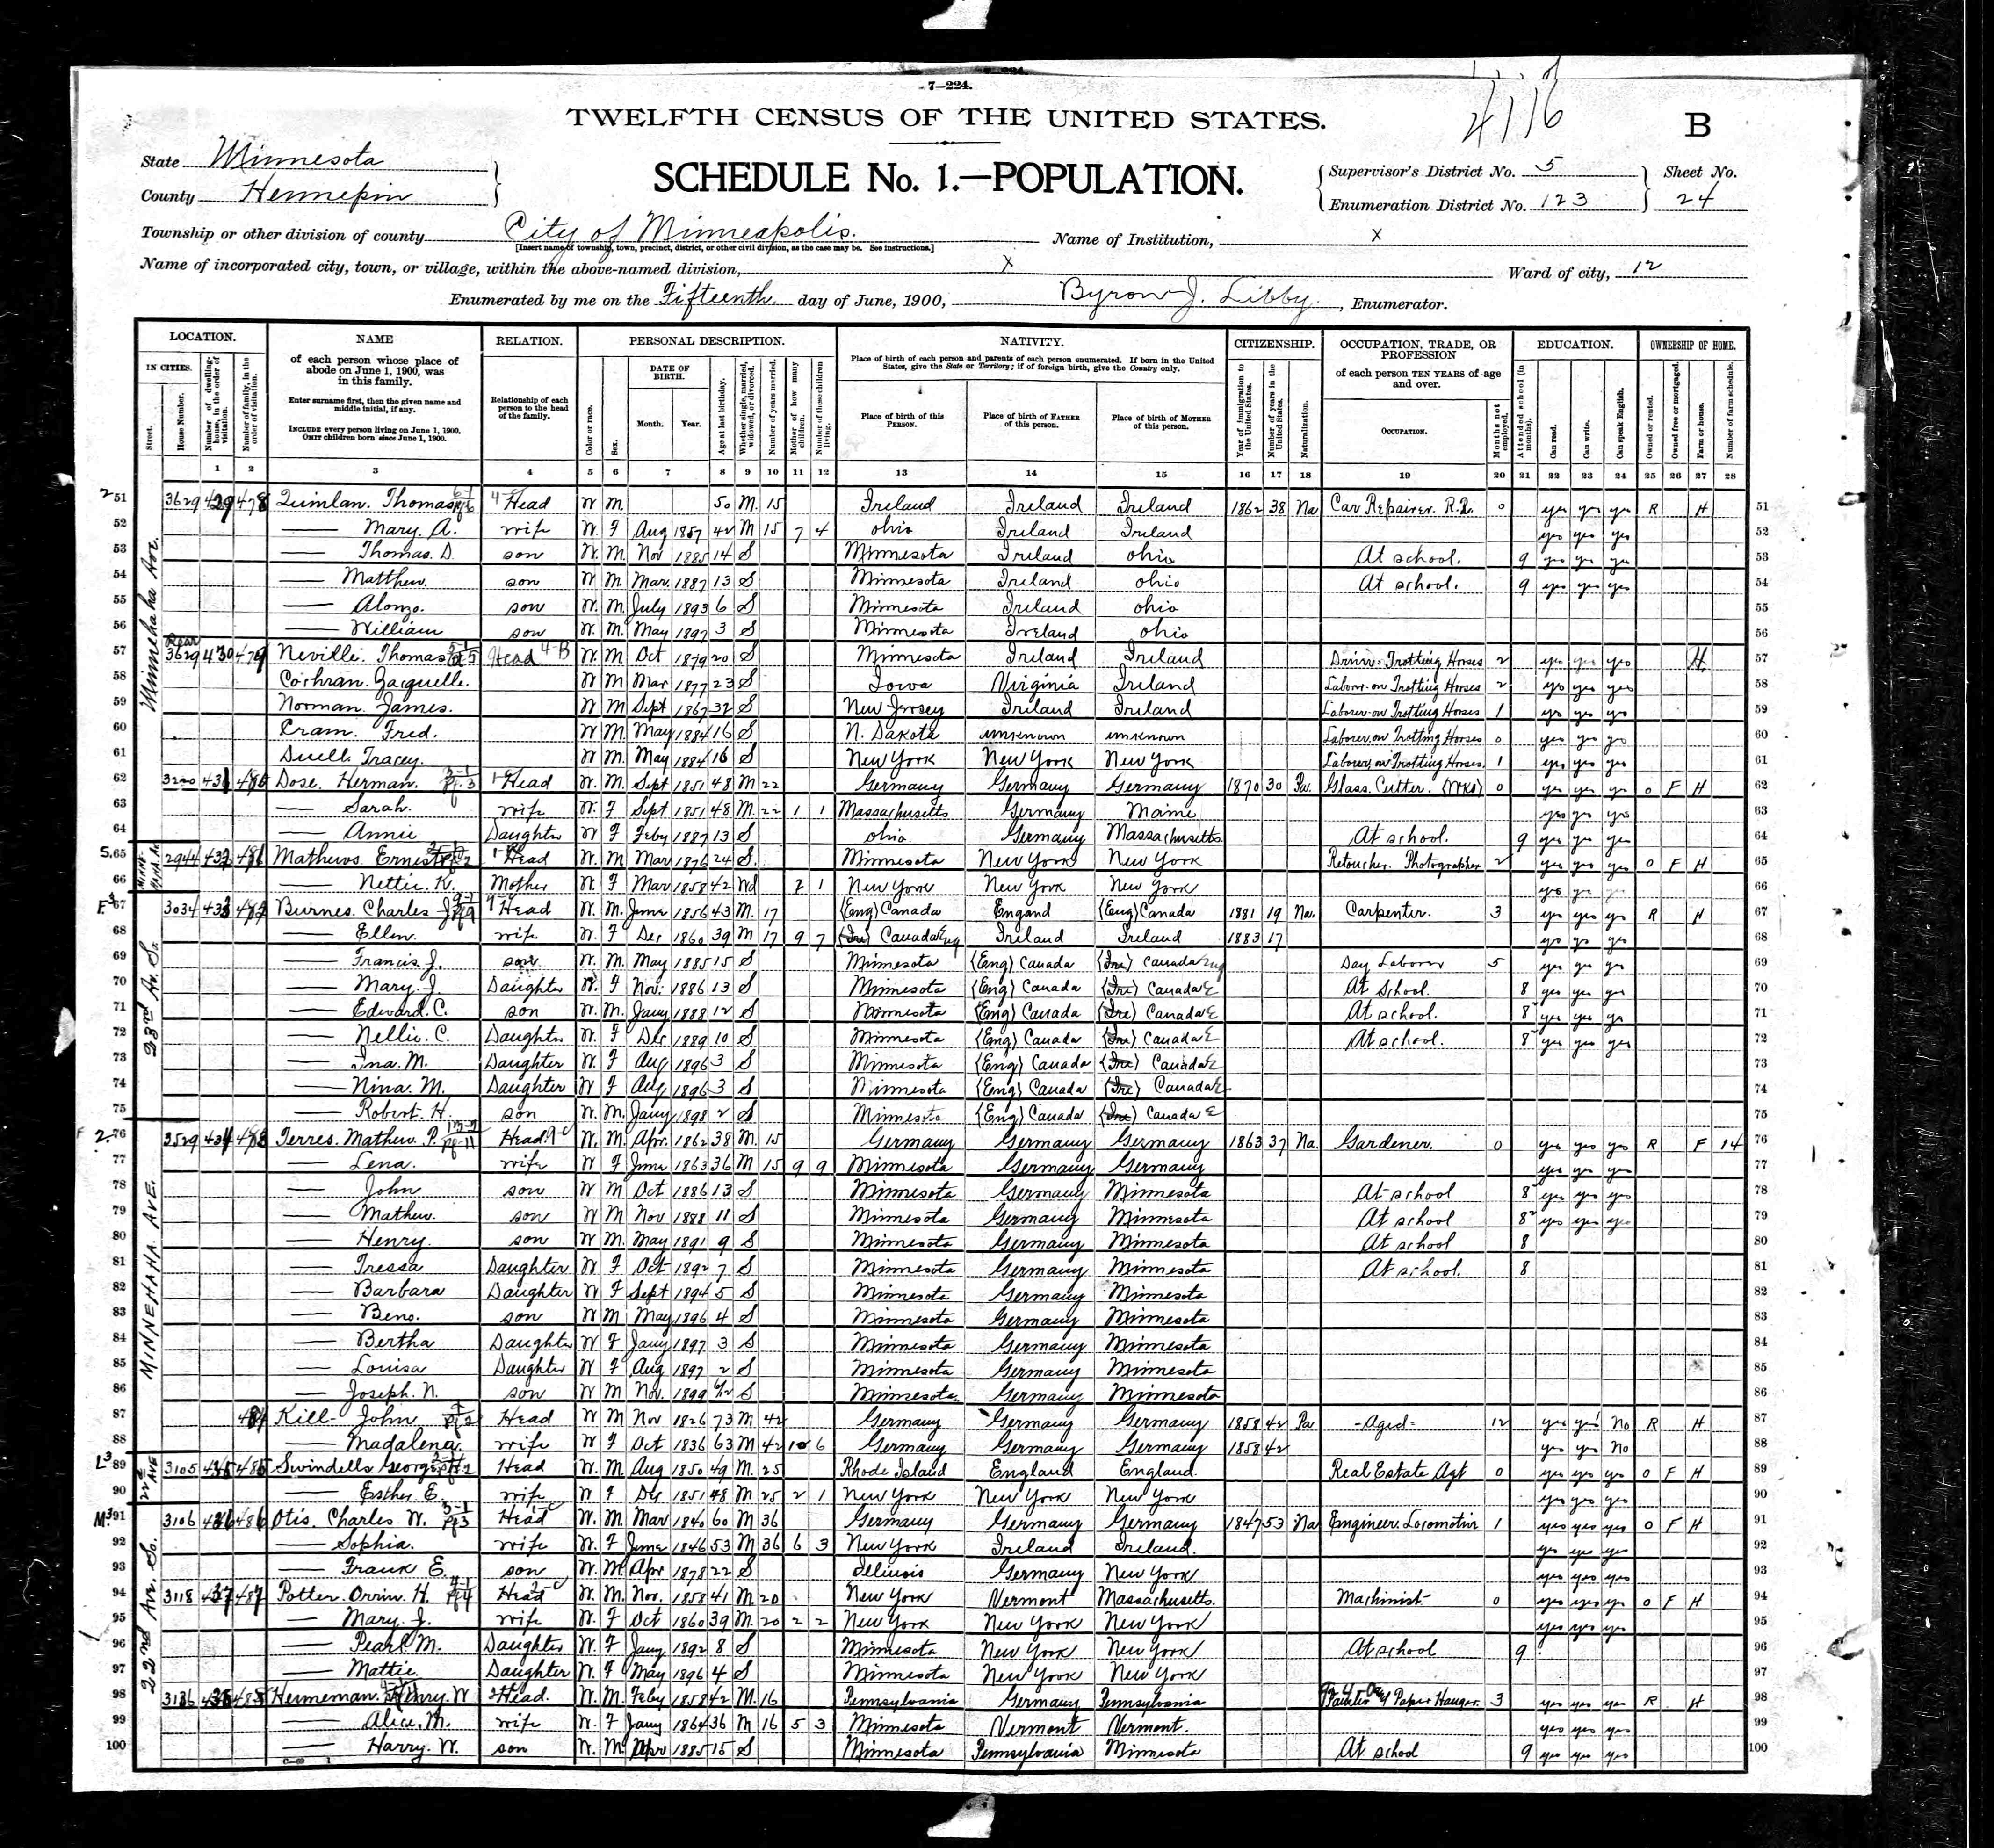 7—224.
4116
TWELFTH CENSUS OF THE UNITED STATES.
B
State Minnesota
County Hennepin
SCHEDULE No. 1.—POPULATION.
Supervisor's District No. 5
Enumeration District No. 123
Sheet No.
24
Township or other division of county City of Minneapolis.
[Insert name of township, town, precinct, district, or other civil division, as the case may be. See instructions.]
Name of Institution, X
Name of incorporated city, town, or village, within the above-named division, X
Ward of city, 12
Enumerated by me on the Fifteenth day of June, 1900, Byron J. Libby, Enumerator.
LOCATION. NAME RELATION. PERSONAL DESCRIPTION. NATIVITY. CITIZENSHIP. OCCUPATION, TRADE, OR PROFESSION EDUCATION. OWNERSHIP OF HOME.
IN CITIES.
Street.
House Number.
Number of dwelling-house, in the order of visitation.
Number of family, in the order of visitation.
of each person whose place of abode on June 1, 1900, was in this family.
Enter surname first, then the given name and middle initial, if any.
INCLUDE every person living on June 1, 1900.
OMIT children born since June 1, 1900.
Relationship of each person to the head of the family.
Color or race.
Sex.
DATE OF BIRTH.
Month. Year.
Age at last birthday.
Whether single, married, widowed, or divorced.
Number of years married.
Mother of how many children.
Number of these children living.
Place of birth of each person and parents of each person enumerated. If born in the United States, give the State or Territory; if of foreign birth, give the Country only.
Place of birth of this PERSON.
Place of birth of FATHER of this person.
Place of birth of MOTHER of this person.
Year of immigration to the United States.
Number of years in the United States.
Naturalization.
of each person TEN YEARS of age and over.
OCCUPATION.
Months not employed.
Attended school (in months).
Can read.
Can write.
Can speak English.
Owned or rented.
Owned free or mortgaged.
Farm or house.
Number of farm schedule.
1 2 3 4 5 6 7 8 9 10 11 12 13 14 15 16 17 18 19 20 21 22 23 24 25 26 27 28
Minnehaha Av.
51 3629 429 478 Quinlan. Thomas Head W M 50 M. 15 Ireland Ireland Ireland 1862 38 Na Car Repairer. R.R. 0 yes yes yes R H 51
52 — Mary A. wife W. F Aug 1857 42 M 15 7 4 Ohio Ireland Ireland yes yes yes 52
53 — Thomas. D. son W. M. Nov 1885 14 S Minnesota Ireland Ohio At school. 9 yes yes yes 53
54 — Matthew. son W M Mar. 1887 13 S Minnesota Ireland Ohio At school. 9 yes yes yes 54
55 — Alonzo. son W. M. July 1893 6 S Minnesota Ireland Ohio 55
56 — William son W. M. May 1897 3 S Minnesota Ireland Ohio 56
Rear
57 3629 430 479 Neville. Thomas Head W. M. Oct 1879 20 S Minnesota Ireland Ireland Driver. Trotting Horses 2 yes yes yes H 57
58 Cochran. Jacquelle. W M Mar 1877 23 S Iowa Virginia Ireland Laborer on Trotting Horses 2 yes yes yes 58
59 Norman. James. W M Sept 1867 32 S New Jersey Ireland Ireland Laborer on Trotting Horses 1 yes yes yes 59
60 Cram. Fred. W M. May 1884 16 S N. Dakota unknown unknown Laborer on Trotting Horses 0 yes yes yes 60
61 Duell. Tracey. W M. May 1884 16 S New York New York New York Laborer on Trotting Horses. 1 yes yes yes 61
62 3200 431 480 Dose. Herman. Head W. M. Sept 1851 48 M 22 Germany Germany Germany 1870 30 Pa. Glass Cutter. 0 yes yes yes O F H 62
63 — Sarah. wife W. F Sept 1851 48 M. 22 1 1 Massachusetts Germany Maine yes yes yes 63
64 — Annie Daughter W F Feby 1887 13 S Ohio Germany Massachusetts At school. 9 yes yes yes 64
65 2944 432 481 Mathews. Ernest Head W. M. Mar 1876 24 S. Minnesota New York New York Retoucher. Photographer 2 yes yes yes O F H 65
66 — Nettie. K. Mother W. F Mar 1858 42 Wd 2 1 New York New York New York yes yes yes 66
23rd Av. So.
67 3034 433 482 Burnes. Charles J. Head W. M. June 1856 43 M. 17 (Eng) Canada Engand (Eng) Canada 1881 19 Na. Carpenter. 3 yes yes yes R H 67
68 — Ellen. wife W. F Dec 1860 39 M 17 9 7 (Ire) Canada Eng Ireland Ireland 1883 17 yes yes yes 68
69 — Francis. J. son W. M. May 1885 15 S Minnesota (Eng) Canada (Ire) Canada Eng Day Laborer 5 yes yes yes 69
70 — Mary. J. Daughter W. F Nov. 1886 13 S Minnesota (Eng) Canada (Ire) Canada E At School. 8 yes yes yes 70
71 — Edward. C. son W. M. Jany 1888 12 S Minnesota (Eng) Canada (Ire) Canada E At school. 8 yes yes yes 71
72 — Nellie. C. Daughter W. F Dec 1889 10 S Minnesota (Eng) Canada (Ire) Canada E At school. 8 yes yes yes 72
73 — Ina. M. Daughter W. F Aug 1896 3 S Minnesota (Eng) Canada (Ire) Canada E 73
74 — Nina. M. Daughter W F Aug 1896 3 S Minnesota (Eng) Canada (Ire) Canada E 74
75 — Robert. H. son W. M. Jany 1898 2 S Minnesota (Eng) Canada (Ire) Canada E 75
MINNEHAHA. AVE.
76 3529 434 483 Terres. Mathew. P. Head. W. M. Apr. 1862 38 M. 15 Germany Germany Germany 1863 37 Na. Gardener. 0 yes yes yes R F 14 76
77 — Lena. wife W F June 1863 36 M 15 9 9 Minnesota Germany Germany yes yes yes 77
78 — John son W M Oct 1886 13 S Minnesota Germany Minnesota At school 8 yes yes yes 78
79 — Mathew. son W M Nov 1888 11 S Minnesota Germany Minnesota At school 8 yes yes yes 79
80 — Henry. son W M. May 1891 9 S Minnesota Germany Minnesota At school 8 80
81 — Tressa Daughter W F Oct 1892 7 S Minnesota Germany Minnesota At school. 8 81
82 — Barbara Daughter W F Sept 1894 5 S Minnesota Germany Minnesota 82
83 — Beno. son W M May 1896 4 S Minnesota Germany Minnesota 83
84 — Bertha Daughter W F Jany 1897 3 S Minnesota Germany Minnesota 84
85 — Louisa Daughter W F Aug 1897 2 S Minnesota Germany Minnesota 85
86 — Joseph. N. son W M Nov. 1899 6/12 S Minnesota Germany Minnesota 86
87 484 Kill- John Head W M Nov 1826 73 M. 42 Germany Germany Germany 1858 42 Pa -Aged- 12 yes yes No R H 87
88 — Madalena. wife W F Oct 1836 63 M 42 10 6 Germany Germany Germany 1858 42 yes yes No 88
22nd AVE
89 3105 435 485 Swindells. George Head W. M. Aug 1850 49 M. 25 Rhode Island England England. Real Estate Agt 0 yes yes yes O F H 89
90 — Esther E. wife W F Dec 1851 48 M 25 2 1 New York New York New York yes yes yes 90
22nd Av. So.
91 3106 436 486 Otis. Charles W. Head W. M. Mar 1840 60 M 36 Germany Germany Germany 1847 53 Na Engineer. Locomotive 1 yes yes yes O F H 91
92 — Sophia. wife W. F June 1846 53 M 36 6 3 New York Ireland Ireland. yes yes yes 92
93 — Frank E. son W. M Apr 1878 22 S Illinois Germany New York yes yes yes 93
94 3118 437 487 Potter. Orrin. H. Head W. M. Nov. 1858 41 M. 20 New York Vermont Massachusetts. Machinist 0 yes yes yes O F H 94
95 — Mary. J. wife W. F Oct 1860 39 M. 20 2 2 New York New York New York yes yes yes 95
96 — Pearl M. Daughter W. F Jany 1892 8 S Minnesota New York New York At school 9 96
97 — Mattie. Daughter W. F May 1896 4 S Minnesota New York New York 97
98 3136 438 488 Henneman. Henry. W Head. W. M. Feby 1858 42 M. 16 Pennsylvania Germany Pennsylvania Painter & Paper Hanger. 3 yes yes yes R H 98
99 — Alice. M. wife W. F Jany 1864 36 M 16 5 3 Minnesota Vermont Vermont. yes yes yes 99
100 — Harry. W. son W. M Apr 1885 15 S Minnesota Pennsylvania Minnesota At school 9 yes yes yes 100